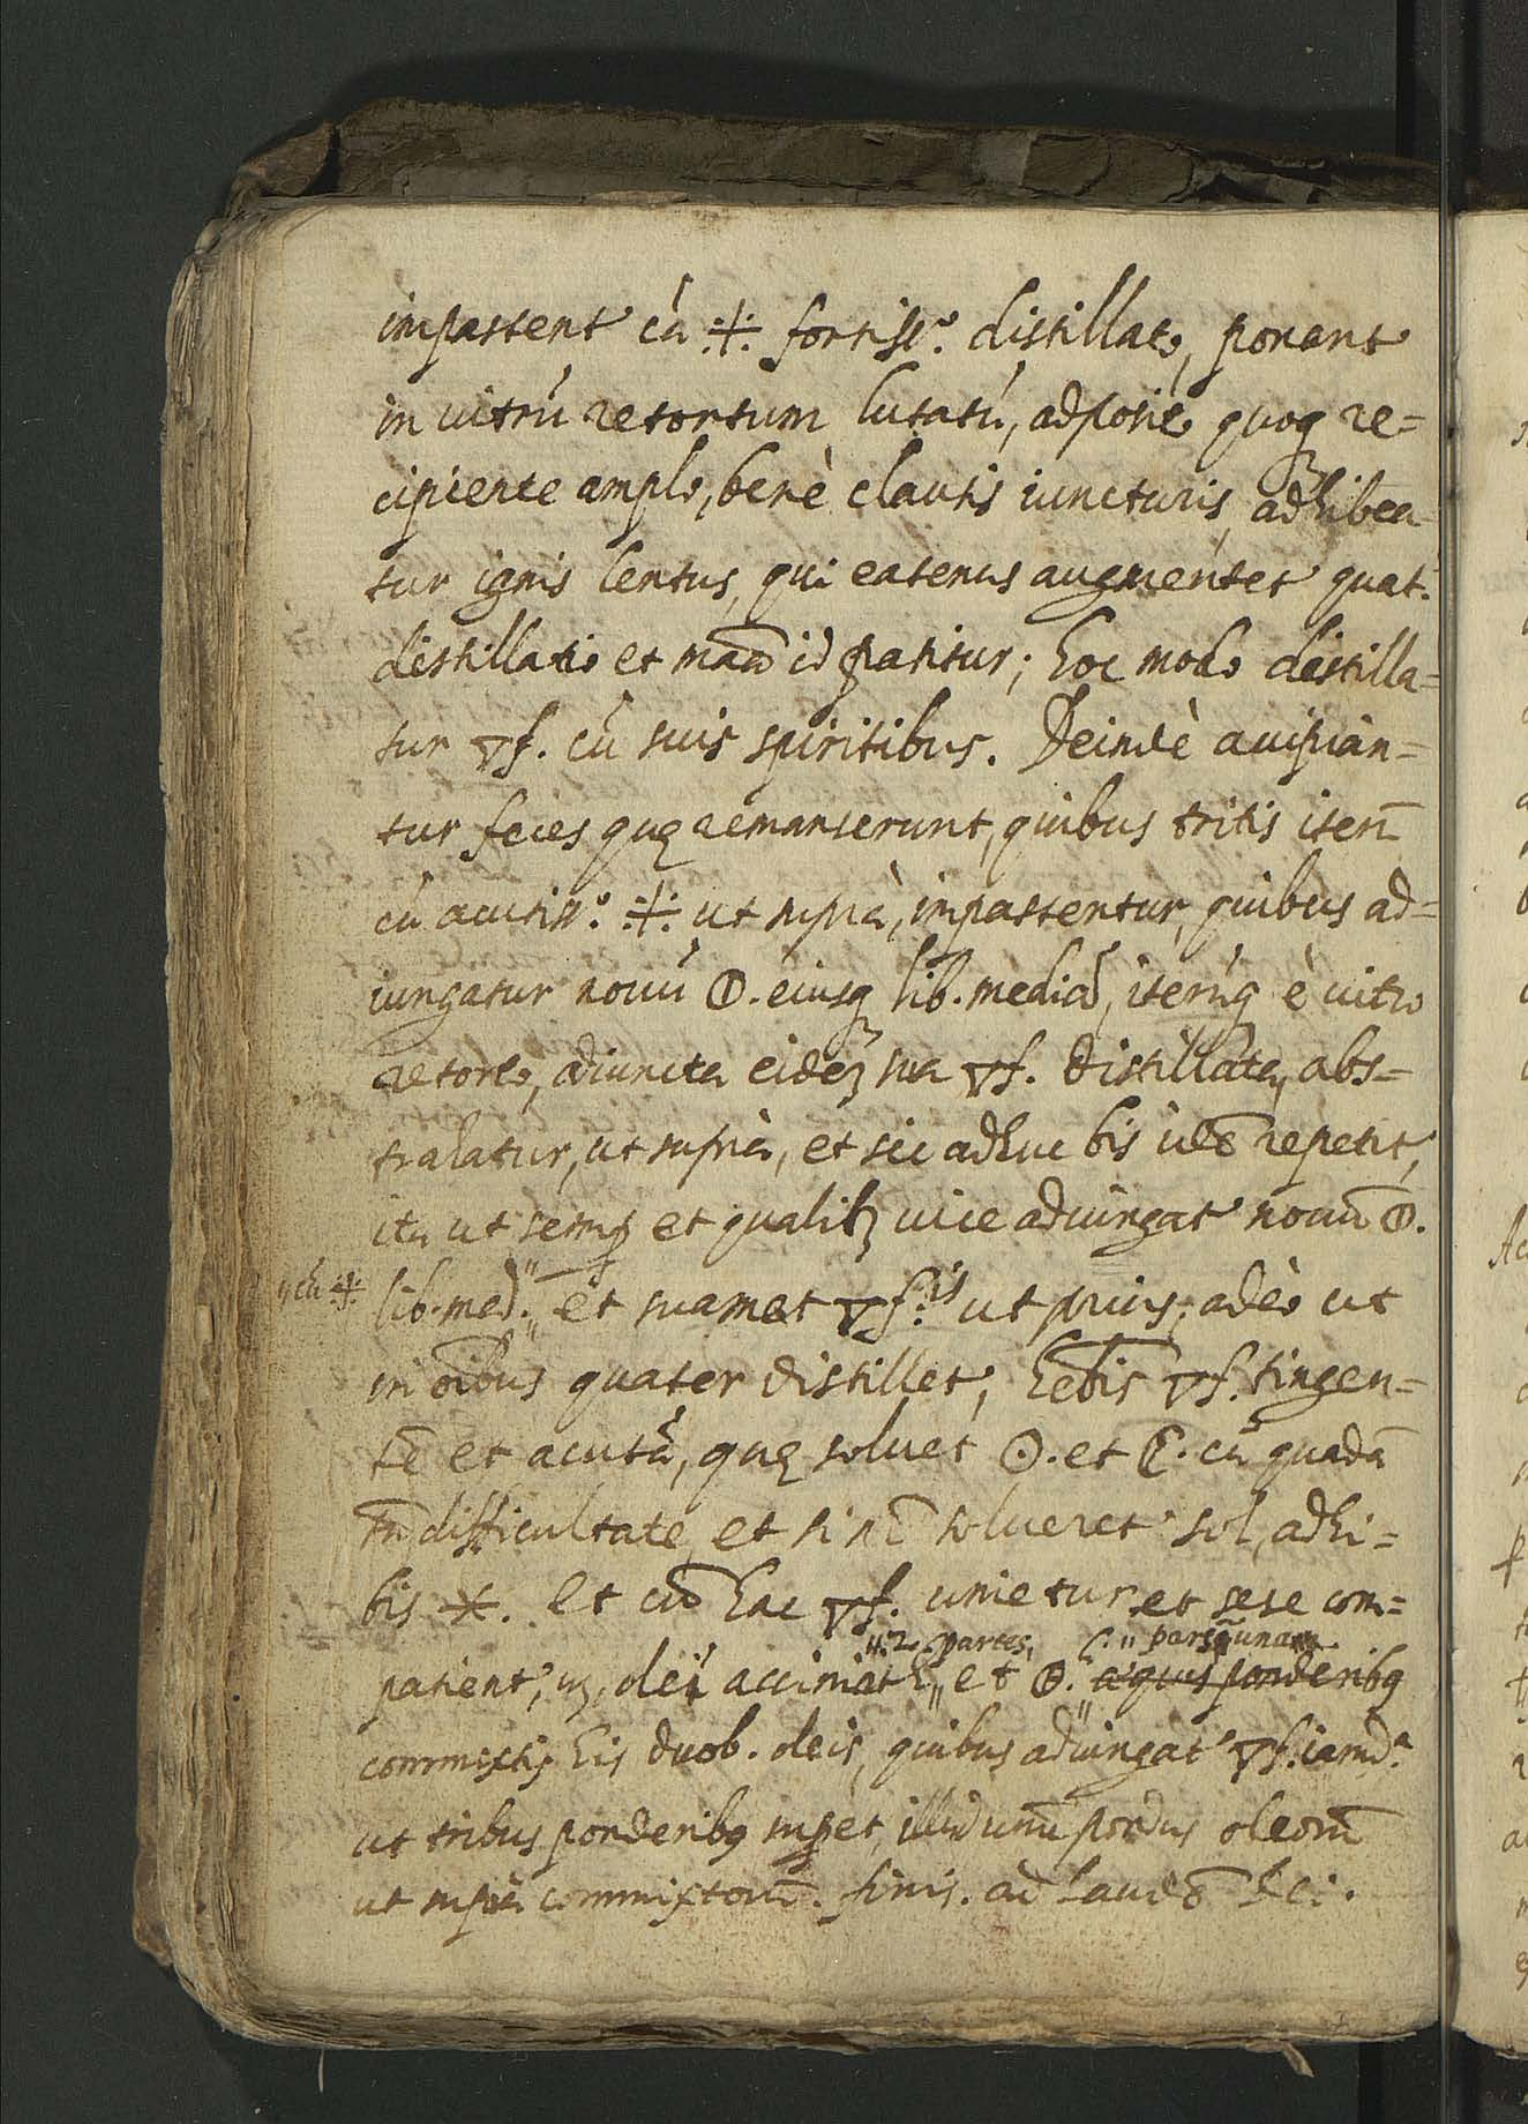 impastent' cū ⁜ fortiss.º distillato, ponant'
in uitrū retortum lutatū, adposito quoqȝ re=
cipiente amplo, benè clausis iuncturis, adhibea=
tur ignis lentus, qui eatenus augmentet' quat.
distillatio et mãa id patitur; hoc modo distilla=
tur 🜄f. cū suis spiritibus. Deindè accipian=
tur feces quę remanserunt, quibus tritis iterū
cū acutiss.º ⁜ ut suprà, impastentur, quibus ad=
iungatur nouū 🜕. eiusqȝ lib. mediā, iterūq è uitro
retorto, adiuncta eidēȝ sua 🜄f. distillata, abs=
trahatur, ut suprà, et sic adhuc bis idē repetit',
ita ut semp et qualibȝ uice adiungat' nouū 🜕.
lib. med. " et suamet 🜄f.is ut prius; adèo ut
" cū ⁜
in oībus quater distillet', hēbis 🜄f. tingen=
tē et acutā, quę soluet ☉. et ☾. cū quadā
tn̄ difficultate, et si nō solueret' sol, adhi=
bis ✶. et cū hac 🜄f. unietur et sese com=
": 2. partes, ☾. " parsq̄ unam
patient', uȝ, olei accipiat' " et 🜕. æquis ponderibȝ
commixtis his duob. oleis, quibus adiungat' 🜄f. iamd.ª
ut tribus ponderibȝ supet, illud unū pondus oleorū
ut suprà commixtorū. finis. ad laudē Dei.